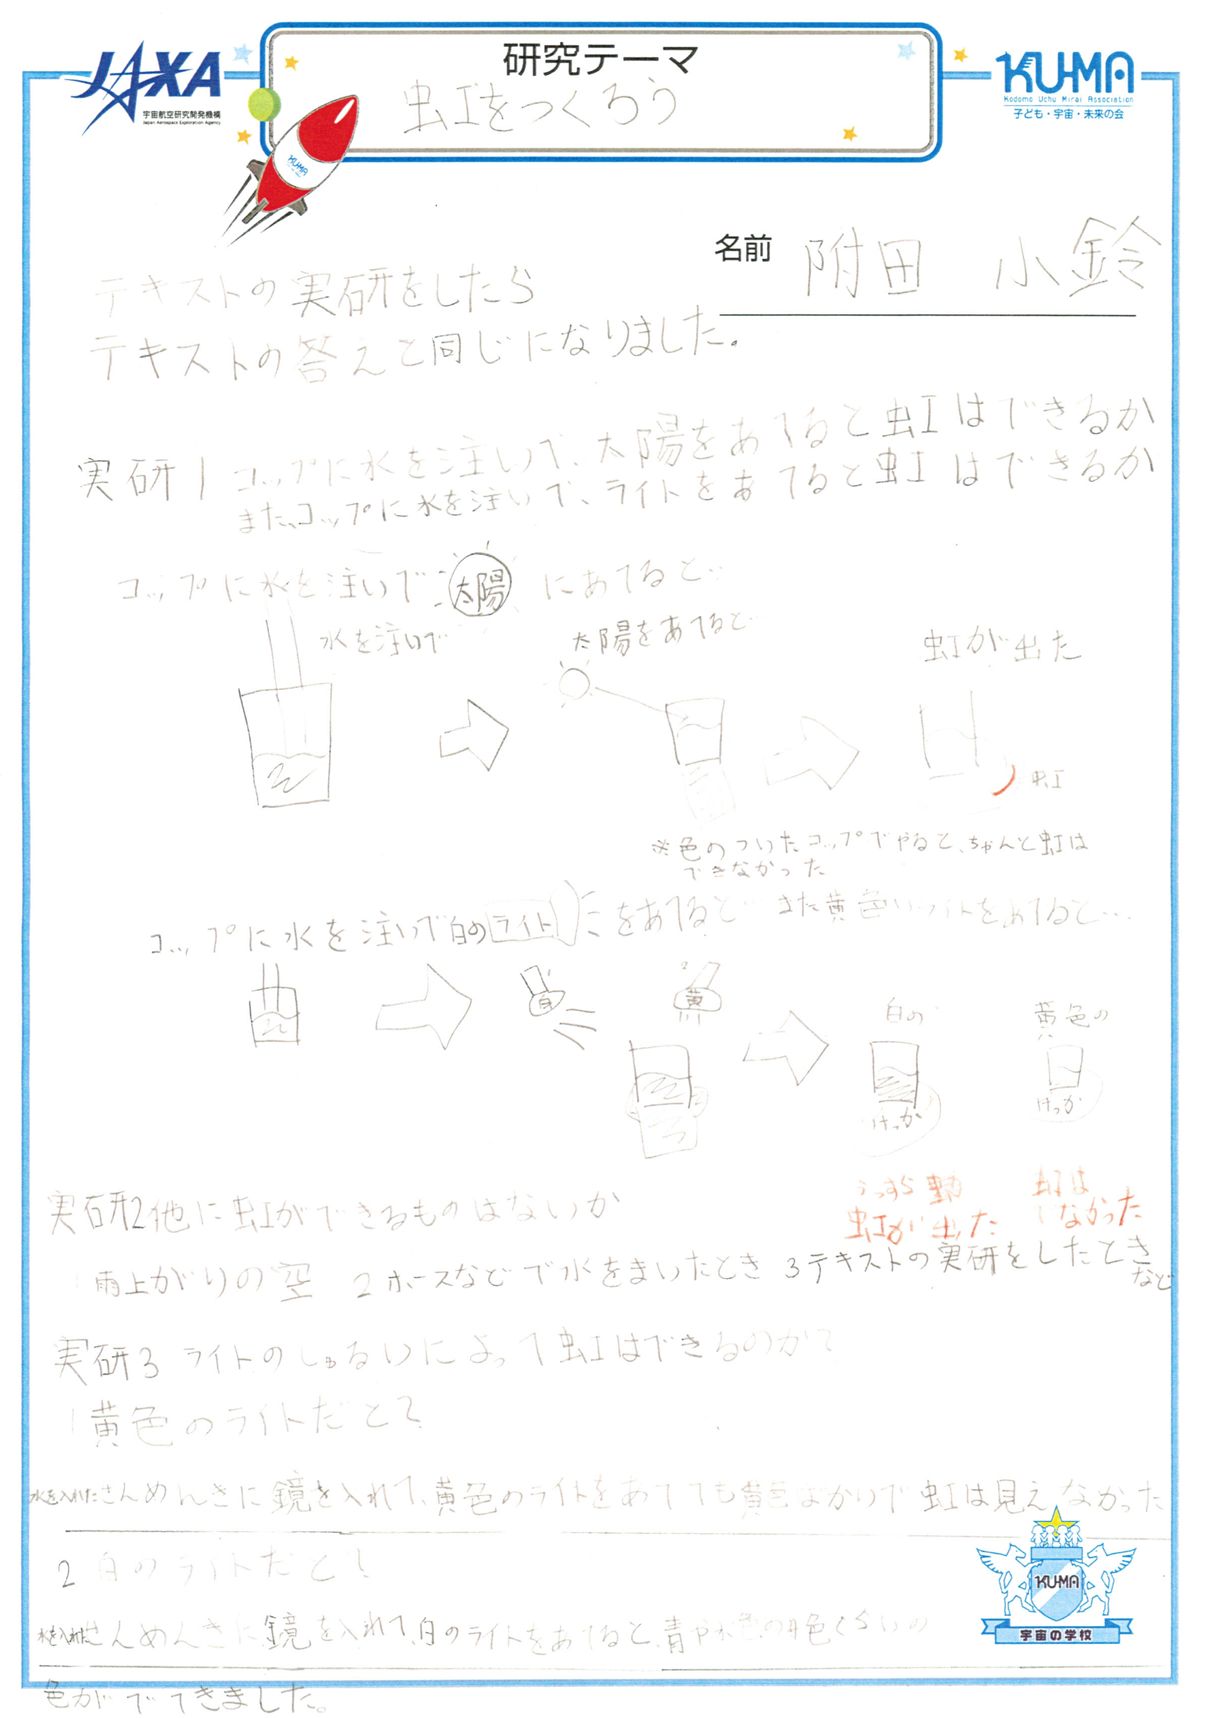 研究テーマ
虹をつくろう
JAXA
宇宙航空研究開発機構
Japan Aerospace Exploration Agency
KU-MA
Kodomo Uchu Mirai Association
子ども・宇宙・未来の会
KU-MA
名前 附田 小鈴
テキストの実研をしたら
テキストの答えと同じになりました。
実研1 コップに水を注いで、太陽をあてると虹はできるか
また、コップに水を注いで、ライトをあてると虹はできるか
コップに水を注いで太陽にあてると…
水を注いで
太陽をあてると…
虹が出た
虹
※色のついたコップでやると、ちゃんと虹は
できなかった
コップに水を注いで白のライトをあてると… また黄色いライトをあてると…
白
黄
白の
黄色の
けっか
けっか
うっすら
虹が出た
虹は
でなかった
実研2他に虹ができるものはないか
1雨上がりの空 2ホースなどで水をまいたとき 3テキストの実研をしたとき
など
実研3 ライトのしゅるいによって虹はできるのか?
1黄色のライトだと?
水を入れたせんめんきに鏡を入れて、黄色のライトをあてても黄色ばかりで虹は見えなかった
2 白のライトだと?
水を入れたせんめんきに鏡を入れて、白のライトをあてると、青や水色の4色くらいの
色がでてきました。
KU-MA
宇宙の学校